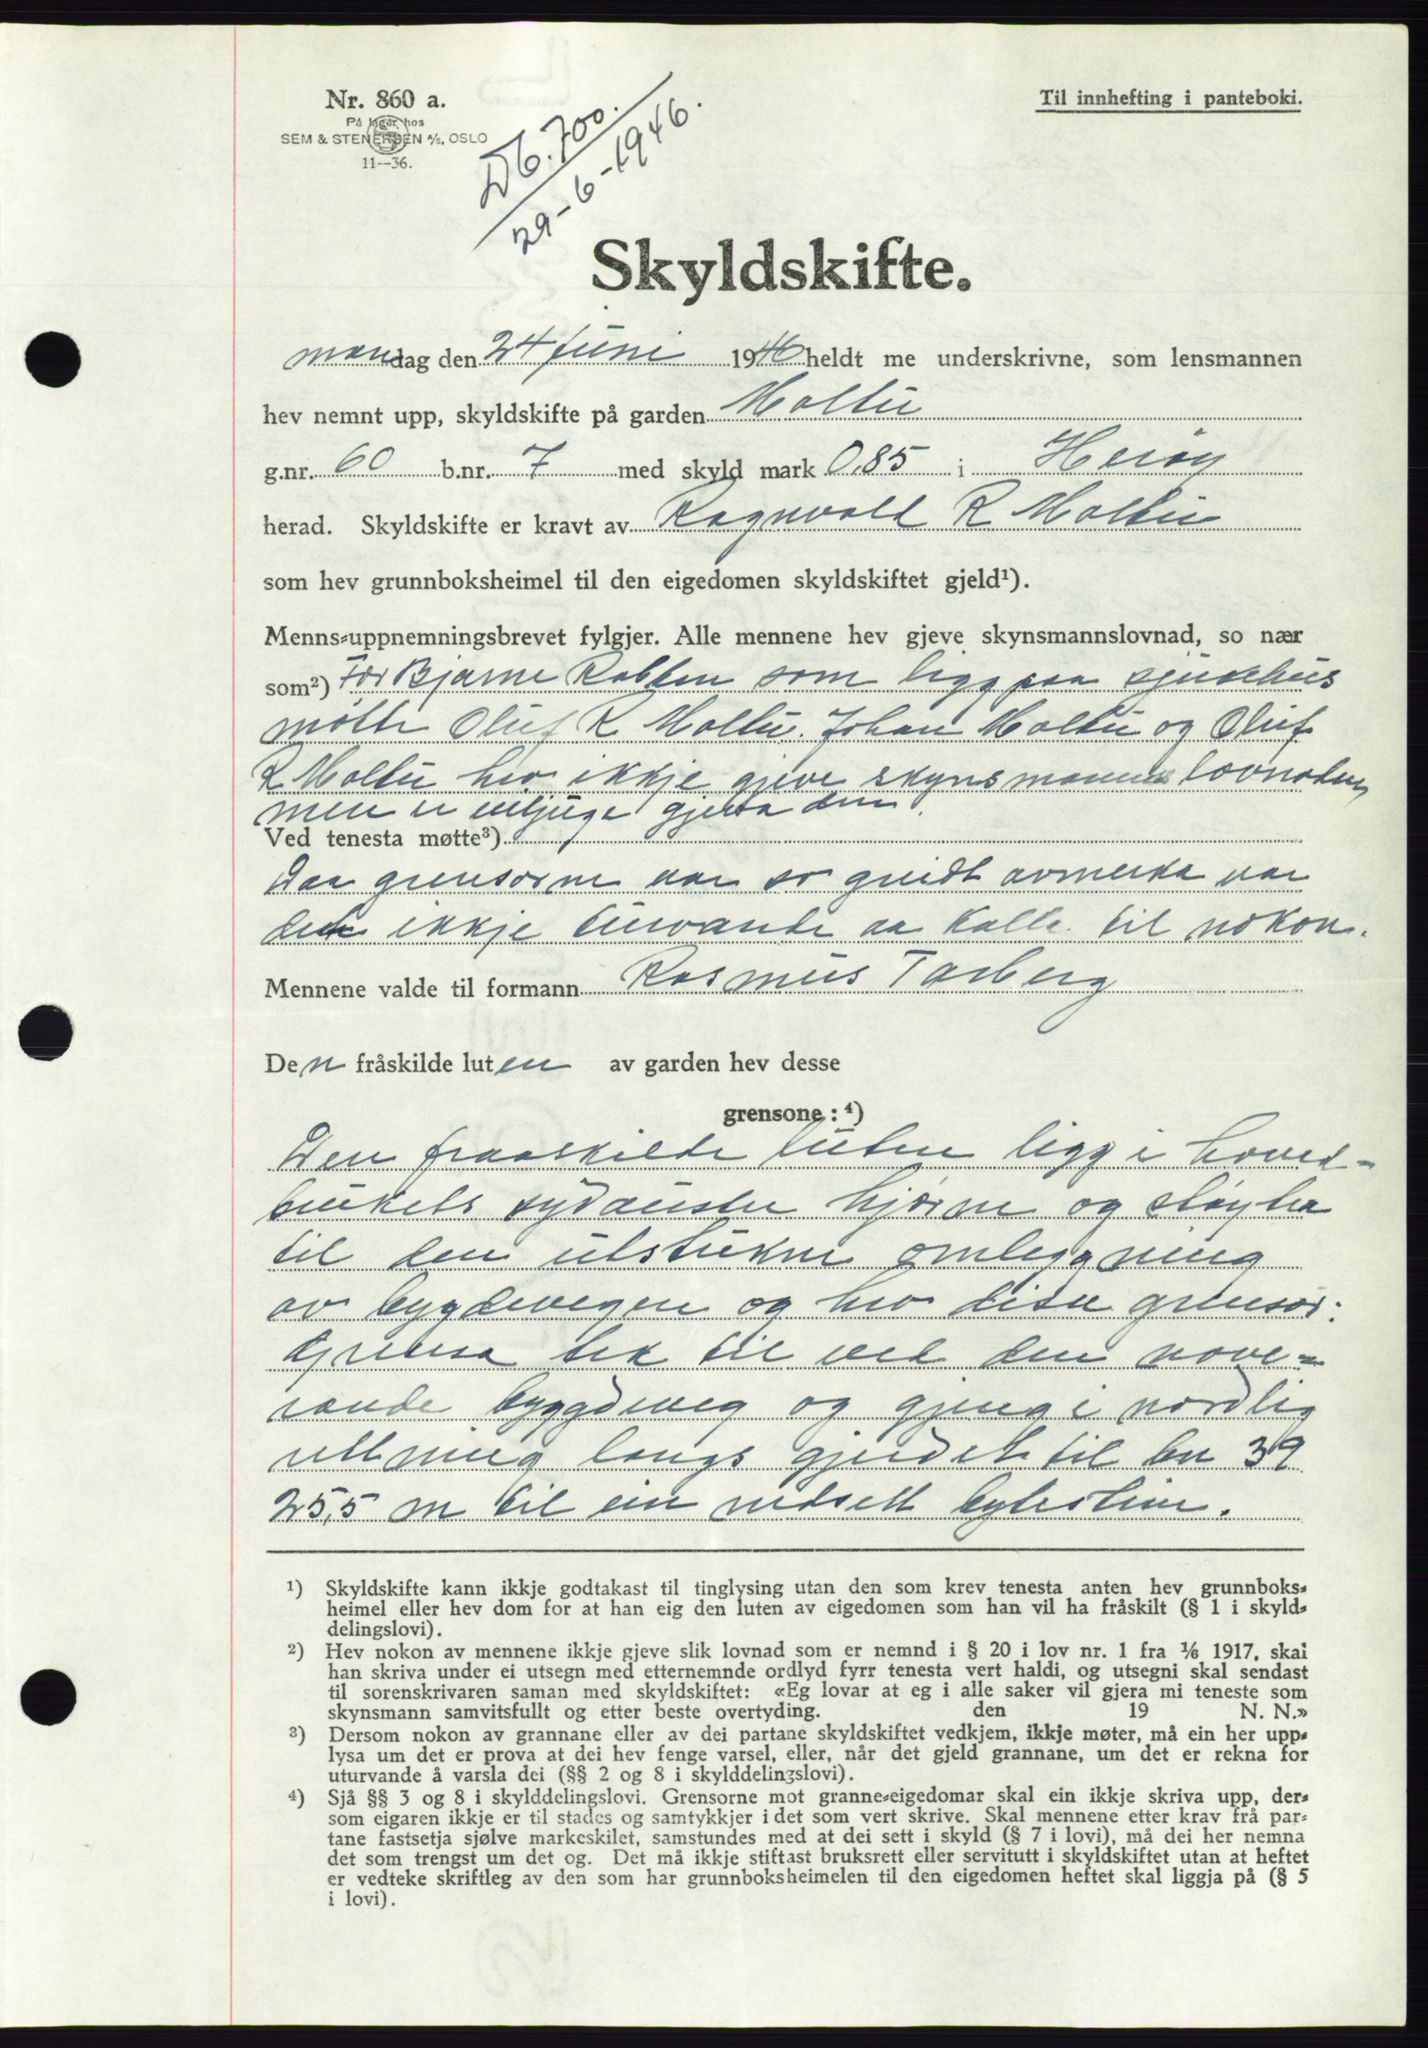 Nr. 860 a.
På lager hos
SEM & STENERSEN A/S, OSLO
11--36.
Til innhefting i panteboki.
Db. 700.
29-6-1946.
Skyldskifte.
mandag den 24 juni 1946 heldt me underskrivne, som lensmannen
hev nemnt upp, skyldskifte på garden Moltu
g.nr. 60 b.nr. 7 med skyld mark 0,85 i Herøy
herad. Skyldskifte er kravt av Ragnvald R Moltu
som hev grunnboksheimel til den eigedomen skyldskiftet gjeld¹).
Menns-uppnemningsbrevet fylgjer. Alle mennene hev gjeve skynsmannslovnad, so nær
som²) For Bjarne Rabben som ligg paa sjukehus
møtte Oluf R Moltu. Johan Moltu og Oluf
R Moltu hev ikkje gjeve skynsmanns lovnaden
men er viljuge gjera den.
Ved tenesta møtte³)
Daa grensorne var so greidt avmerka var
det ikkje turvande aa kalle til nokon.
Mennene valde til formann Rasmus Tarberg
Den fråskilde luten av garden hev desse
grensone: ⁴)
Den fraaskilde luten ligg i hoved-
brukets sydaustre hjørne og støyter
til den utstukne omleggning
av bygdevegen og hev disse grensor:
Grensa tek til ved den nove-
rande byggdeveg og gjeng i nordlig
rettning langs gjerdet til bn 39
25,5 m til ein nedsett bytestein.
¹) Skyldskifte kann ikkje godtakast til tinglysing utan den som krev tenesta anten hev grunnboks-
heimel eller hev dom for at han eig den luten av eigedomen som han vil ha fråskilt (§ 1 i skyld-
delingslovi).
²) Hev nokon av mennene ikkje gjeve slik lovnad som er nemnd i § 20 i lov nr. 1 fra 1/6 1917, skal
han skriva under ei utsegn med etternemnde ordlyd fyrr tenesta vert haldi, og utsegni skal sendast
til sorenskrivaren saman med skyldskiftet: «Eg lovar at eg i alle saker vil gjera mi teneste som
skynsmann samvitsfullt og etter beste overtyding. den 19 N. N.»
³) Dersom nokon av grannane eller av dei partane skyldskiftet vedkjem, ikkje møter, må ein her upp-
lysa um det er prova at dei hev fenge varsel, eller, når det gjeld grannane, um det er rekna for
uturvande å varsla dei (§§ 2 og 8 i skylddelingslovi).
⁴) Sjå §§ 3 og 8 i skylddelingslovi. Grensorne mot granne-eigedomar skal ein ikkje skriva upp, der-
som eigaren ikkje er til stades og samtykkjer i det som vert skrive. Skal mennene etter krav frå par-
tane fastsetja sjølve markeskilet, samstundes med at dei sett i skyld (§ 7 i lovi), må dei her nemna
det som trengst um det og. Det må ikkje stiftast bruksrett eller servitutt i skyldskiftet utan at heftet
er vedteke skriftleg av den som har grunnboksheimelen til den eigedomen heftet skal liggja på (§ 5
i lovi).